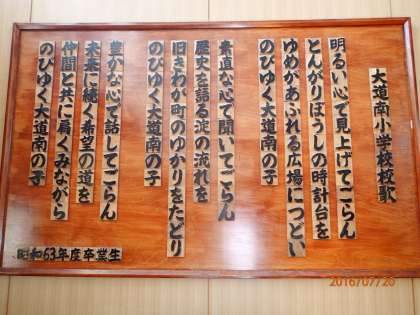 大道南小学校校歌
明るい心で見上げてごらん
とんがりぼうしの時計台を
ゆめがあふれる広場につどい
のびゆく大道南の子
素直な心で聞いてごらん
歴史を語る淀の流れを
旧きわが町のゆかりをたどり
のびゆく大道南の子
豊かな心で話してごらん
未来に続く希望の道を
仲間と共に肩くみながら
のびゆく大道南の子
昭和63年度卒業生
2016/07/20